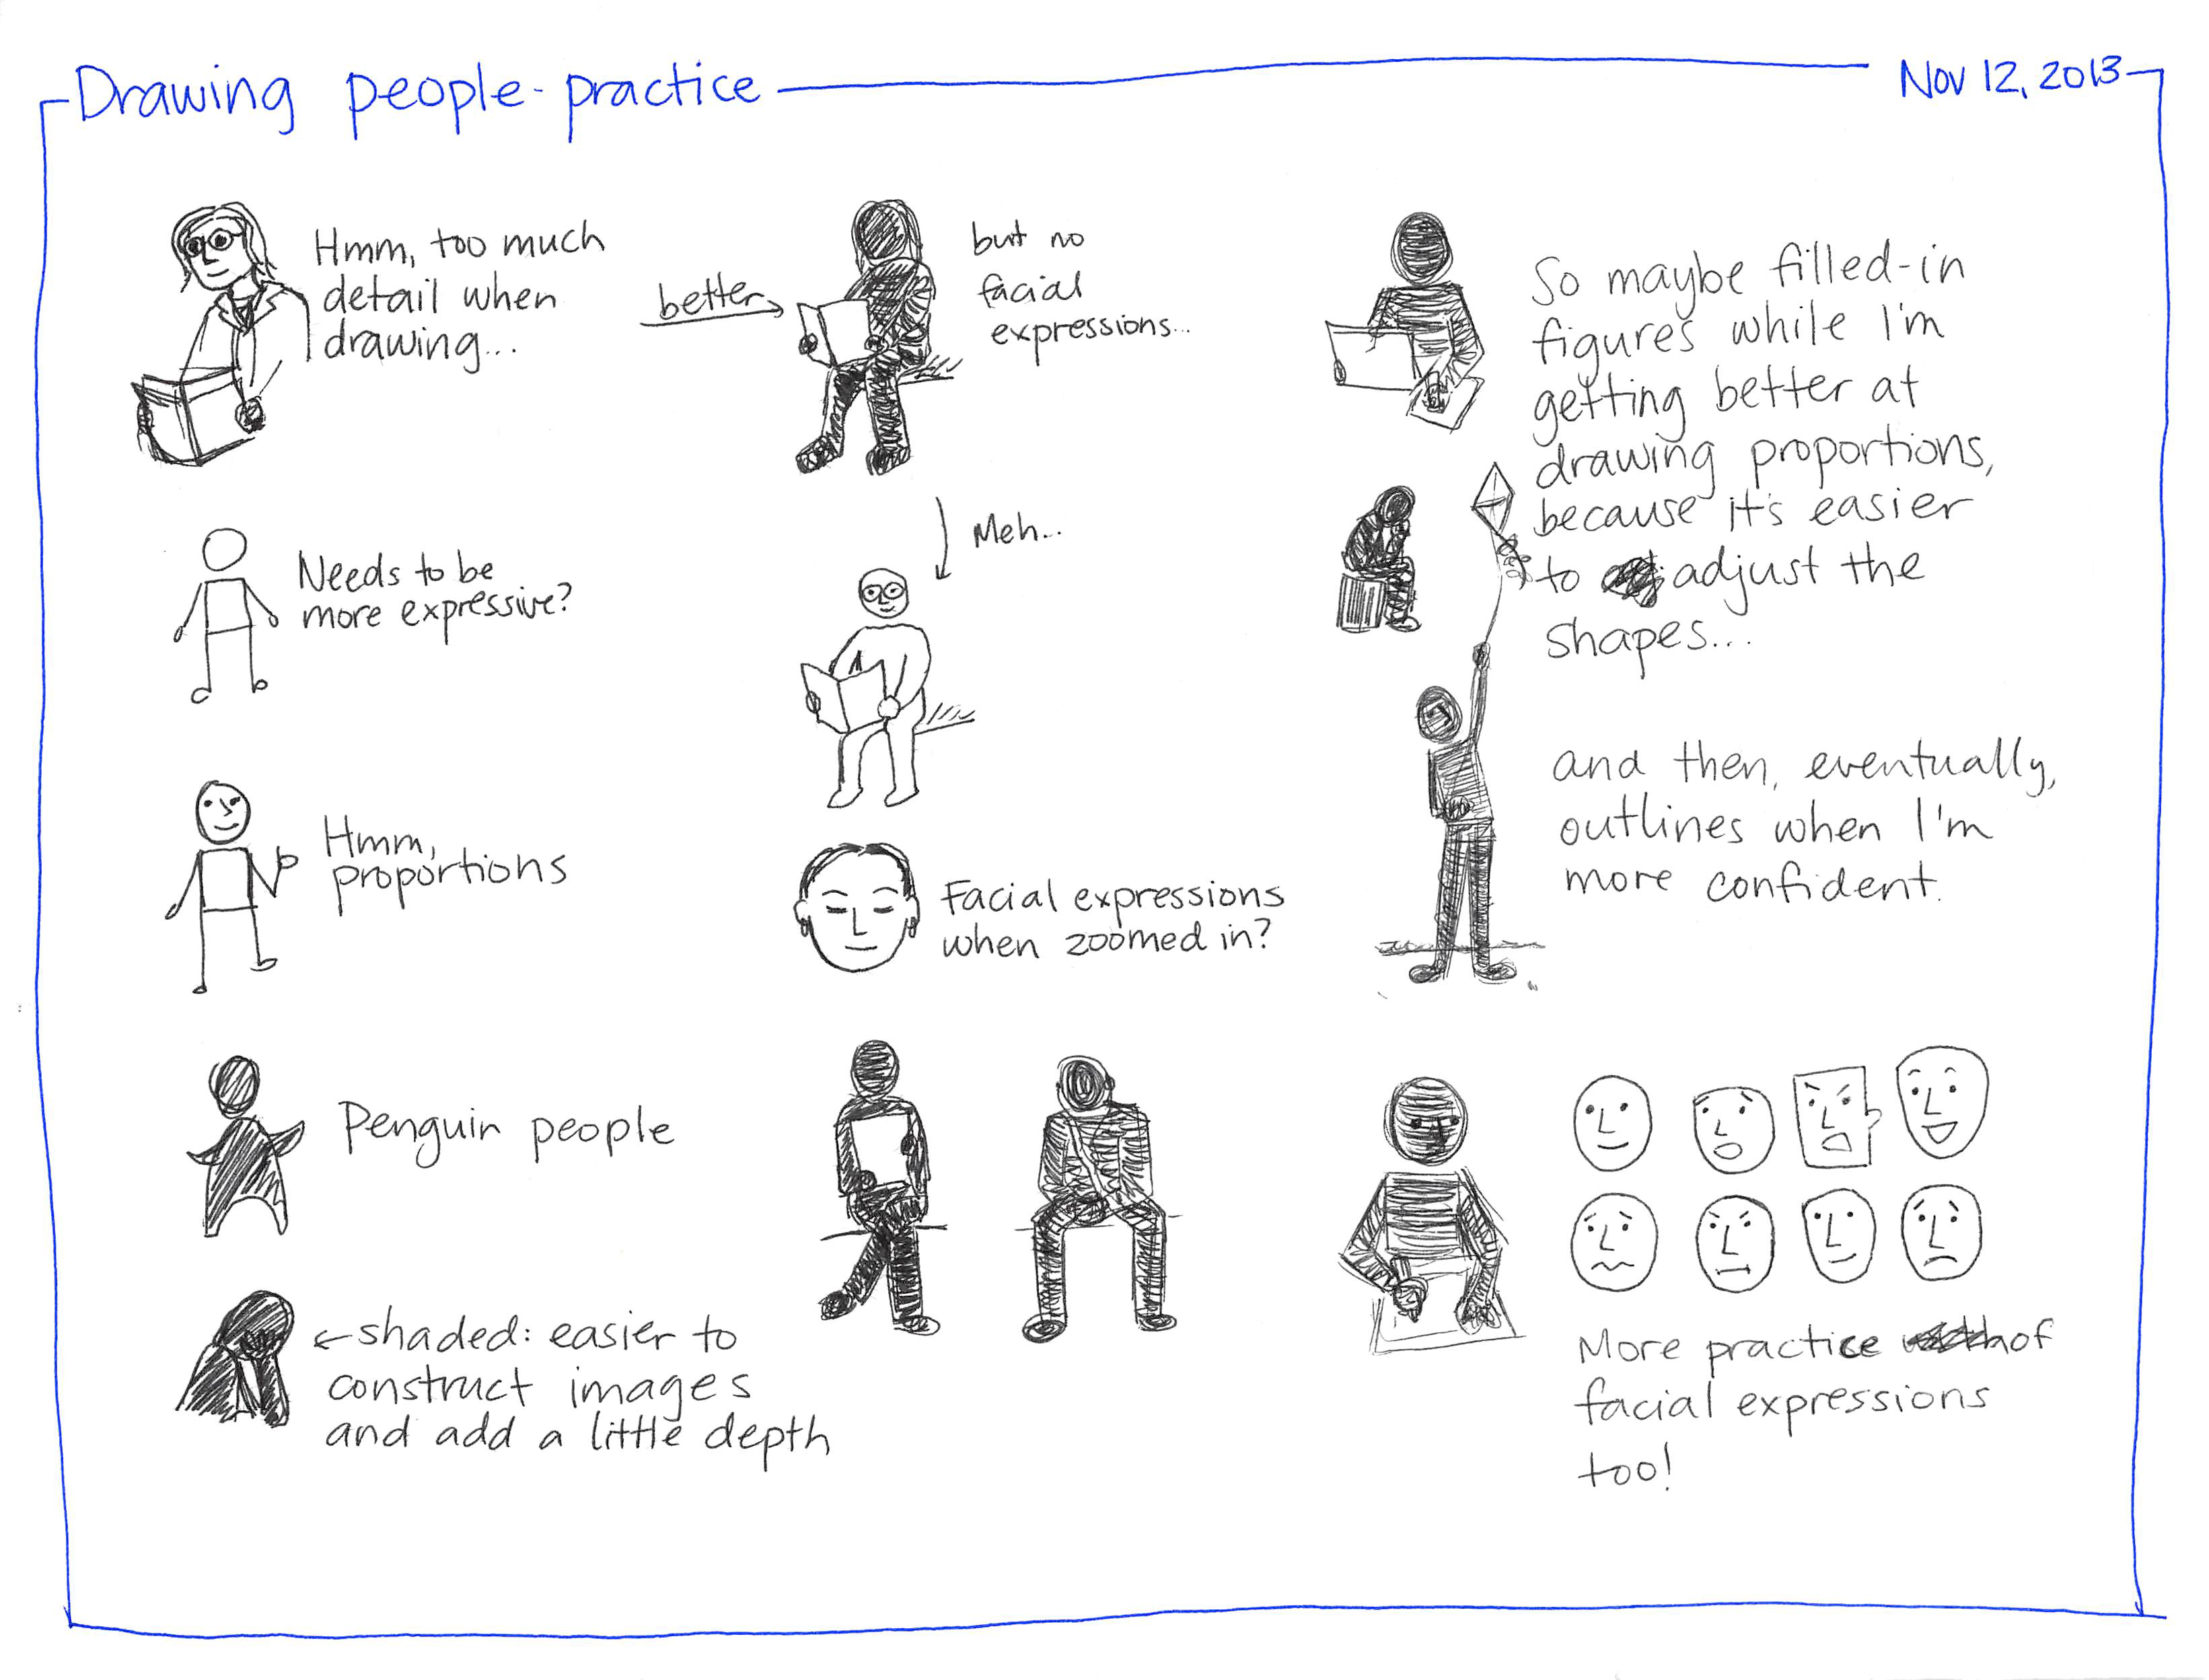 Drawing people - practice
Nov 12, 2013
Hmm, too much
detail when
drawing...
better
but no
facial
expressions...
Needs to be
more expressive?
Meh...
Hmm,
proportions
Facial expressions
when zoomed in?
Penguin people
shaded: easier to
construct images
and add a little depth
So maybe filled-in
figures while I'm
getting better at
drawing proportions,
because it's easier
to adjust the
shapes...
and then, eventually,
outlines when I'm
more confident.
More practice of
facial expressions
too!